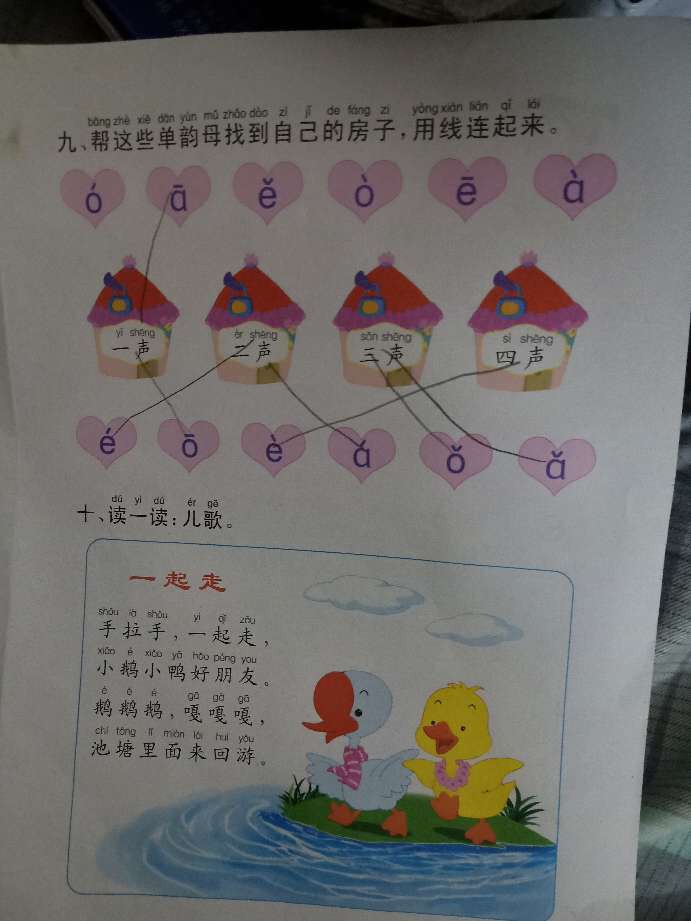 bāng zhè xiē dān yùn mǔ zhǎo dào zì jǐ de fáng zi yòng xiàn lián qǐ lái
九、帮这些单韵母找到自己的房子，用线连起来。
ó ā ě ò ē à
yī shēng èr shēng sān shēng sì shēng
一声 二声 三声 四声
é ō è á ǒ ǎ
dú yi dú ér gē
十、读一读：儿歌。
一起走
shǒu lā shǒu yì qǐ zǒu
手拉手，一起走，
xiǎo é xiǎo yā hǎo péng you
小鹅小鸭好朋友。
é é é gā gā gā
鹅鹅鹅，嘎嘎嘎，
chí táng lǐ miàn lái huí yóu
池塘里面来回游。